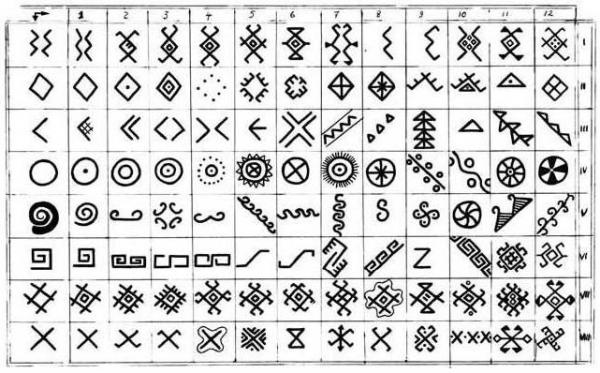 1 2 3 4 5 6 7 8 9 10 11 12
I
II
III
IV
V
VI
VII
VIII